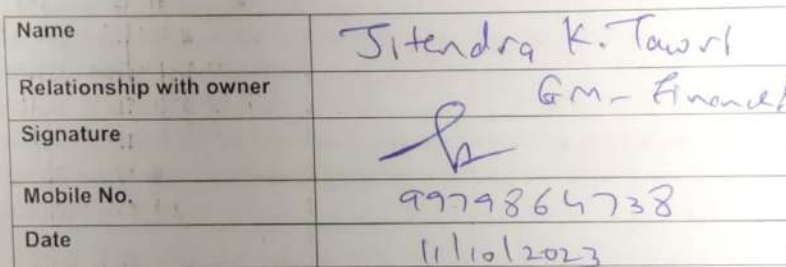 Name Jitendra K. Tawri
Relationship with owner GM - Finance
Signature
Mobile No. 9979864738
Date 11/10/2023